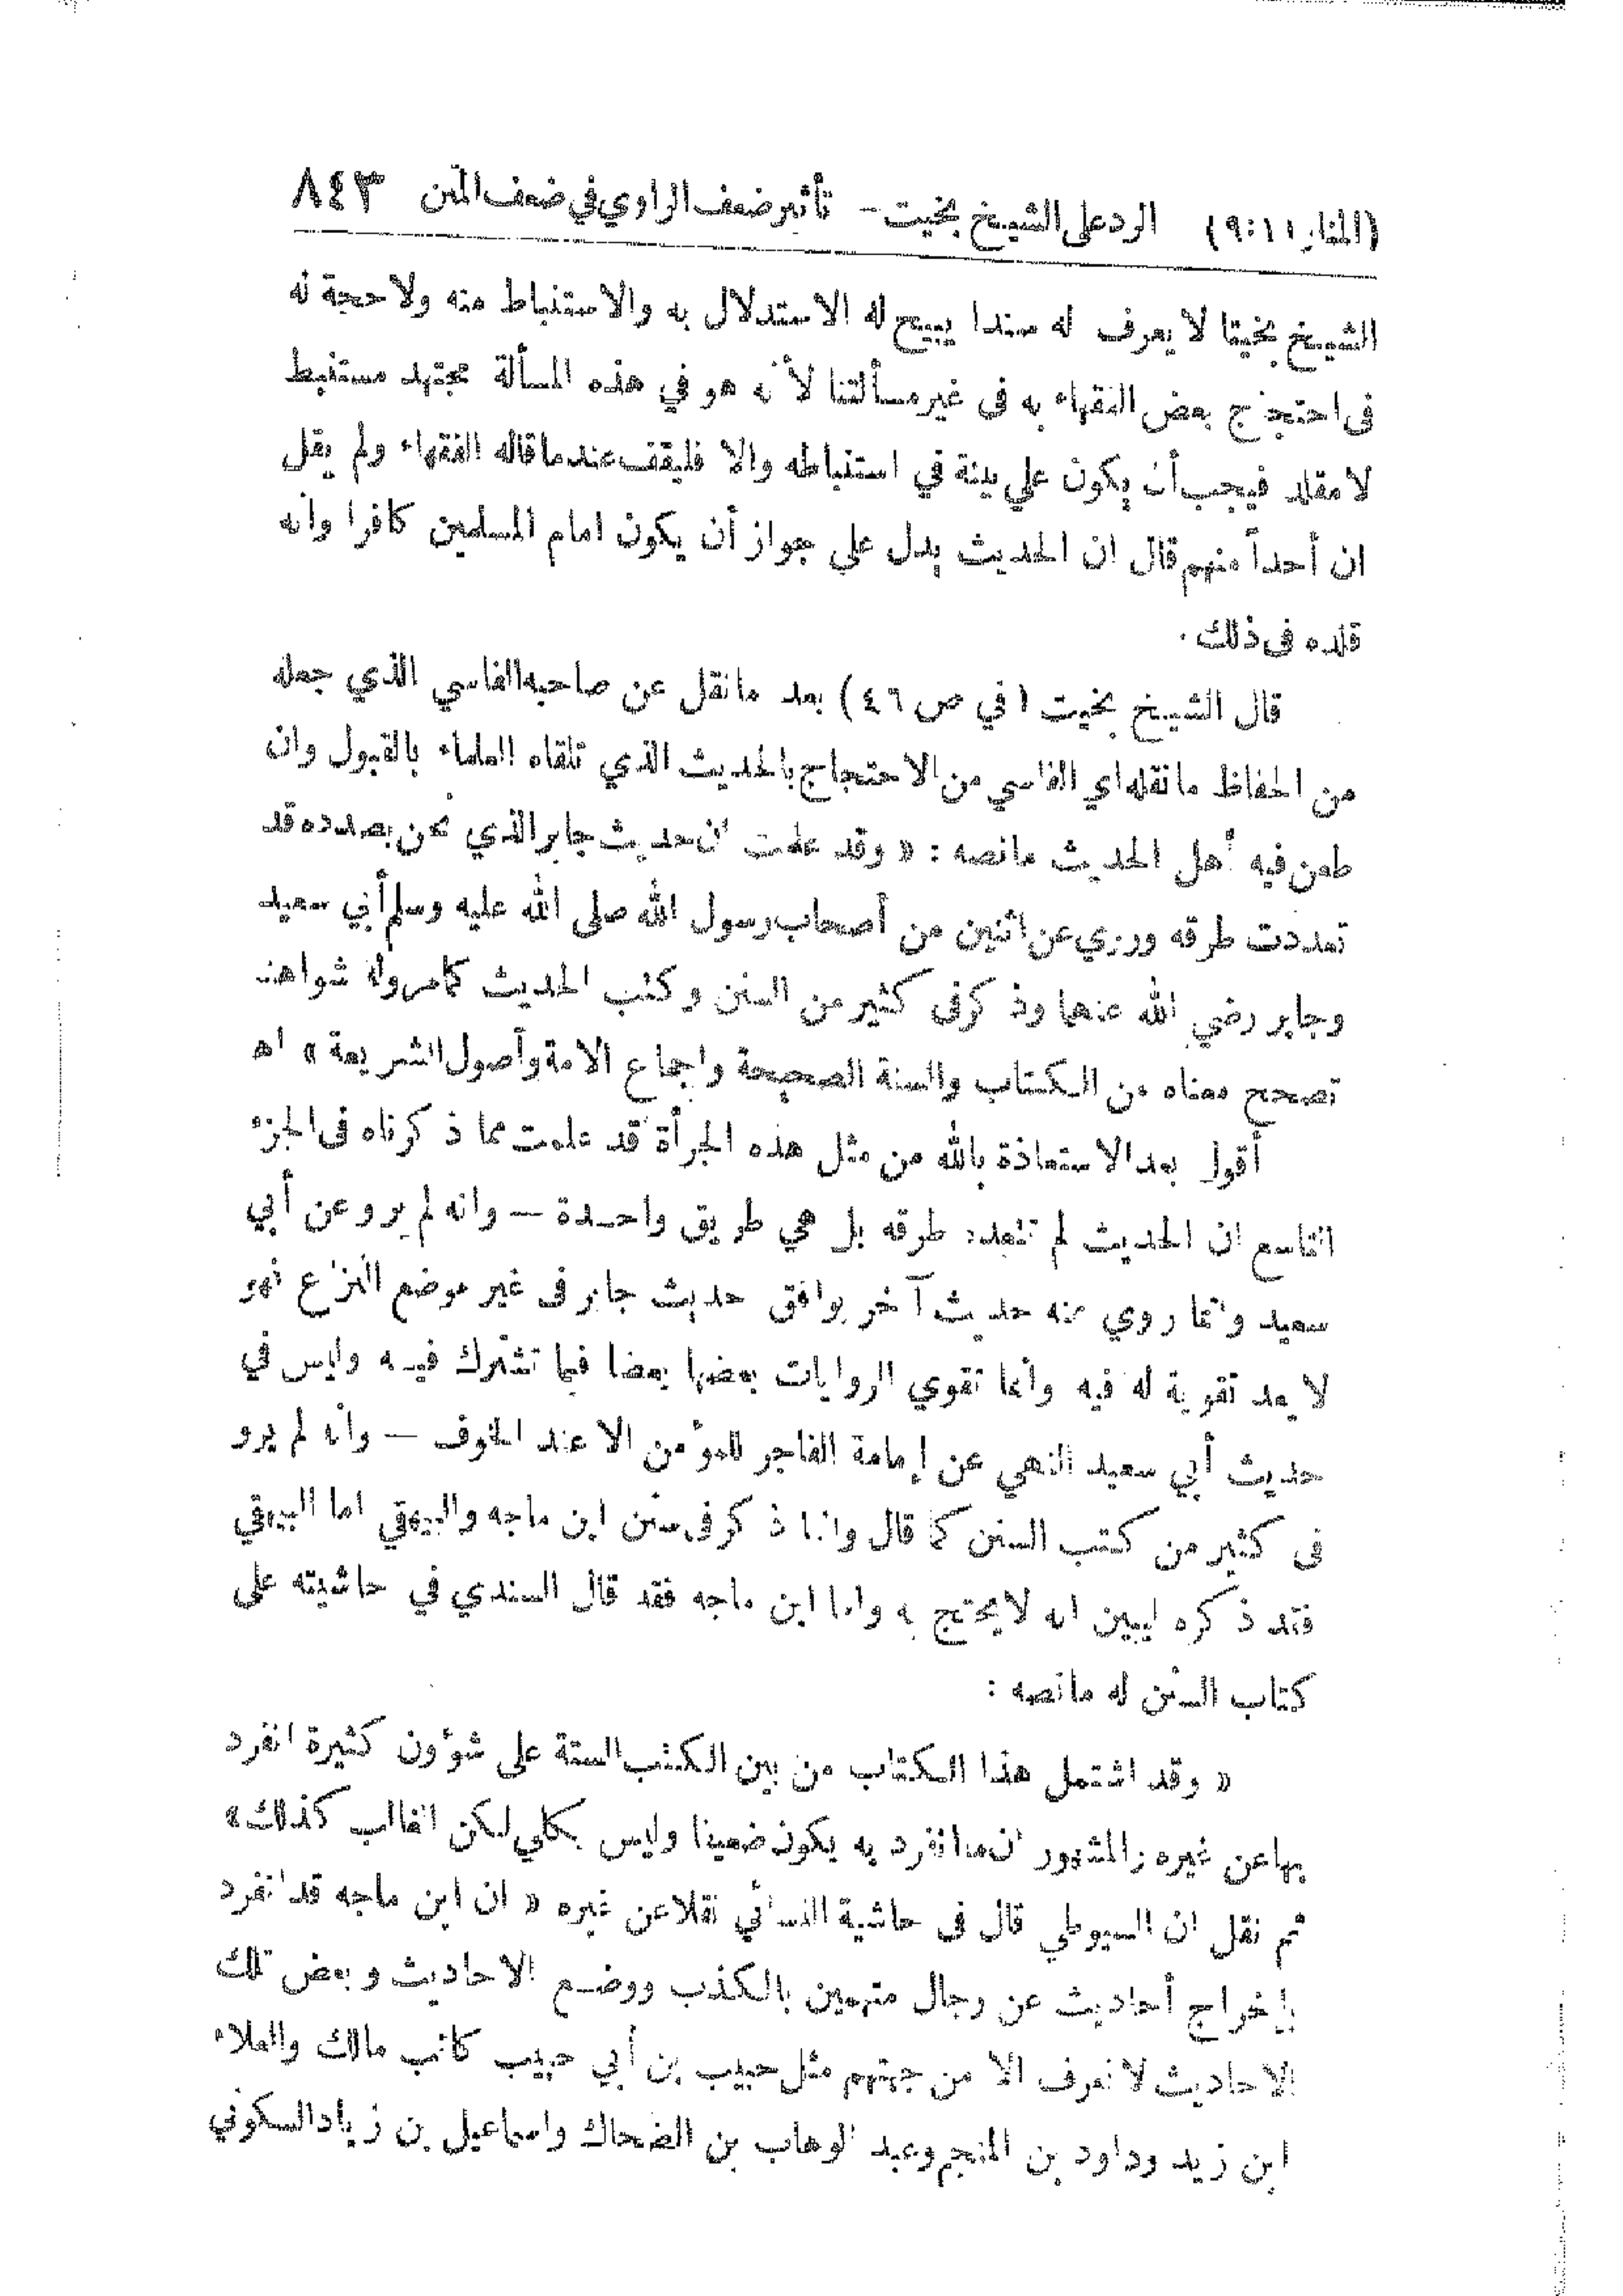 (المنار ٩:١١) الرد على الشيخ بخيت – تأثير ضعف الراوي في ضعف المتن ٨٤٣
الشيخ بخيتا لا يعرف له سندا يبيح له الاستدلال به والاستنباط منه ولا حجة له
فى احتجاج بعض الفقهاء به فى غير مسألتنا لأنه هو في هذه المسألة مجتهد مستنبط
لا مقلد فيجب أن يكون على بينة في استنباطه والا فليقف عند ما قاله الفقهاء ولم يقل
ان أحداً منهم قال ان الحديث يدل على جواز أن يكون امام المسلمين كافرا وانه
قلده فى ذلك .
قال الشيخ بخيت ( في ص ٤٦ ) بعد ما نقل عن صاحبه الفاسي الذي جعله
من الحفاظ ما نقله اي الفاسي من الاحتجاج بالحديث الذي تلقاه العلماء بالقبول وان
طعن فيه أهل الحديث ما نصه : « وقد علمت ان حديث جابر الذي نحن بصدده قد
تعددت طرقه وروي عن اثنين من أصحاب رسول الله صلى الله عليه وسلم أبي سعيد
وجابر رضي الله عنهما وذكر فى كثير من السنن وكتب الحديث كما مر وله شواهد
تصحح معناه من الكتاب والسنة الصحيحة واجماع الامة وأصول الشريعة » اه
أقول بعد الاستعاذة بالله من مثل هذه الجرأة قد علمت مما ذكرناه فى الجزء
التاسع ان الحديث لم تتعدد طرقه بل هي طريق واحدة – وانه لم يرو عن أبي
سعيد وانما روي عنه حديث آخر يوافق حديث جابر فى غير موضع النزاع فهو
لا يعد تقوية له فيه وانما تقوي الروايات بعضها بعضا فيما تشترك فيه وليس في
حديث أبي سعيد النهي عن إمامة الفاجر للمؤمن الا عند الخوف – وانه لم يرو
فى كثير من كتب السنن كما قال وانما ذكر فى سنن ابن ماجه والبيهقي اما البيهقي
فقد ذكره ليبين انه لا يحتج به واما ابن ماجه فقد قال السندي في حاشيته على
كتاب السنن له ما نصه :
« وقد اشتمل هذا الكتاب من بين الكتب الستة على شؤون كثيرة انفرد
بها عن غيره والمشهور ان ما انفرد به يكون ضعيفا وليس بكلي لكن الغالب كذلك »
ثم نقل ان السيوطي قال فى حاشية النسائي نقلا عن غيره « ان ابن ماجه قد انفرد
بإخراج أحاديث عن رجال متهمين بالكذب ووضع الاحاديث وبعض تلك
الاحاديث لا تعرف الا من جهتهم مثل حبيب بن أبي حبيب كاتب مالك والعلاء
ابن زيد وداود بن المنجم وعبد الوهاب بن الضحاك واسماعيل بن زياد السكوني